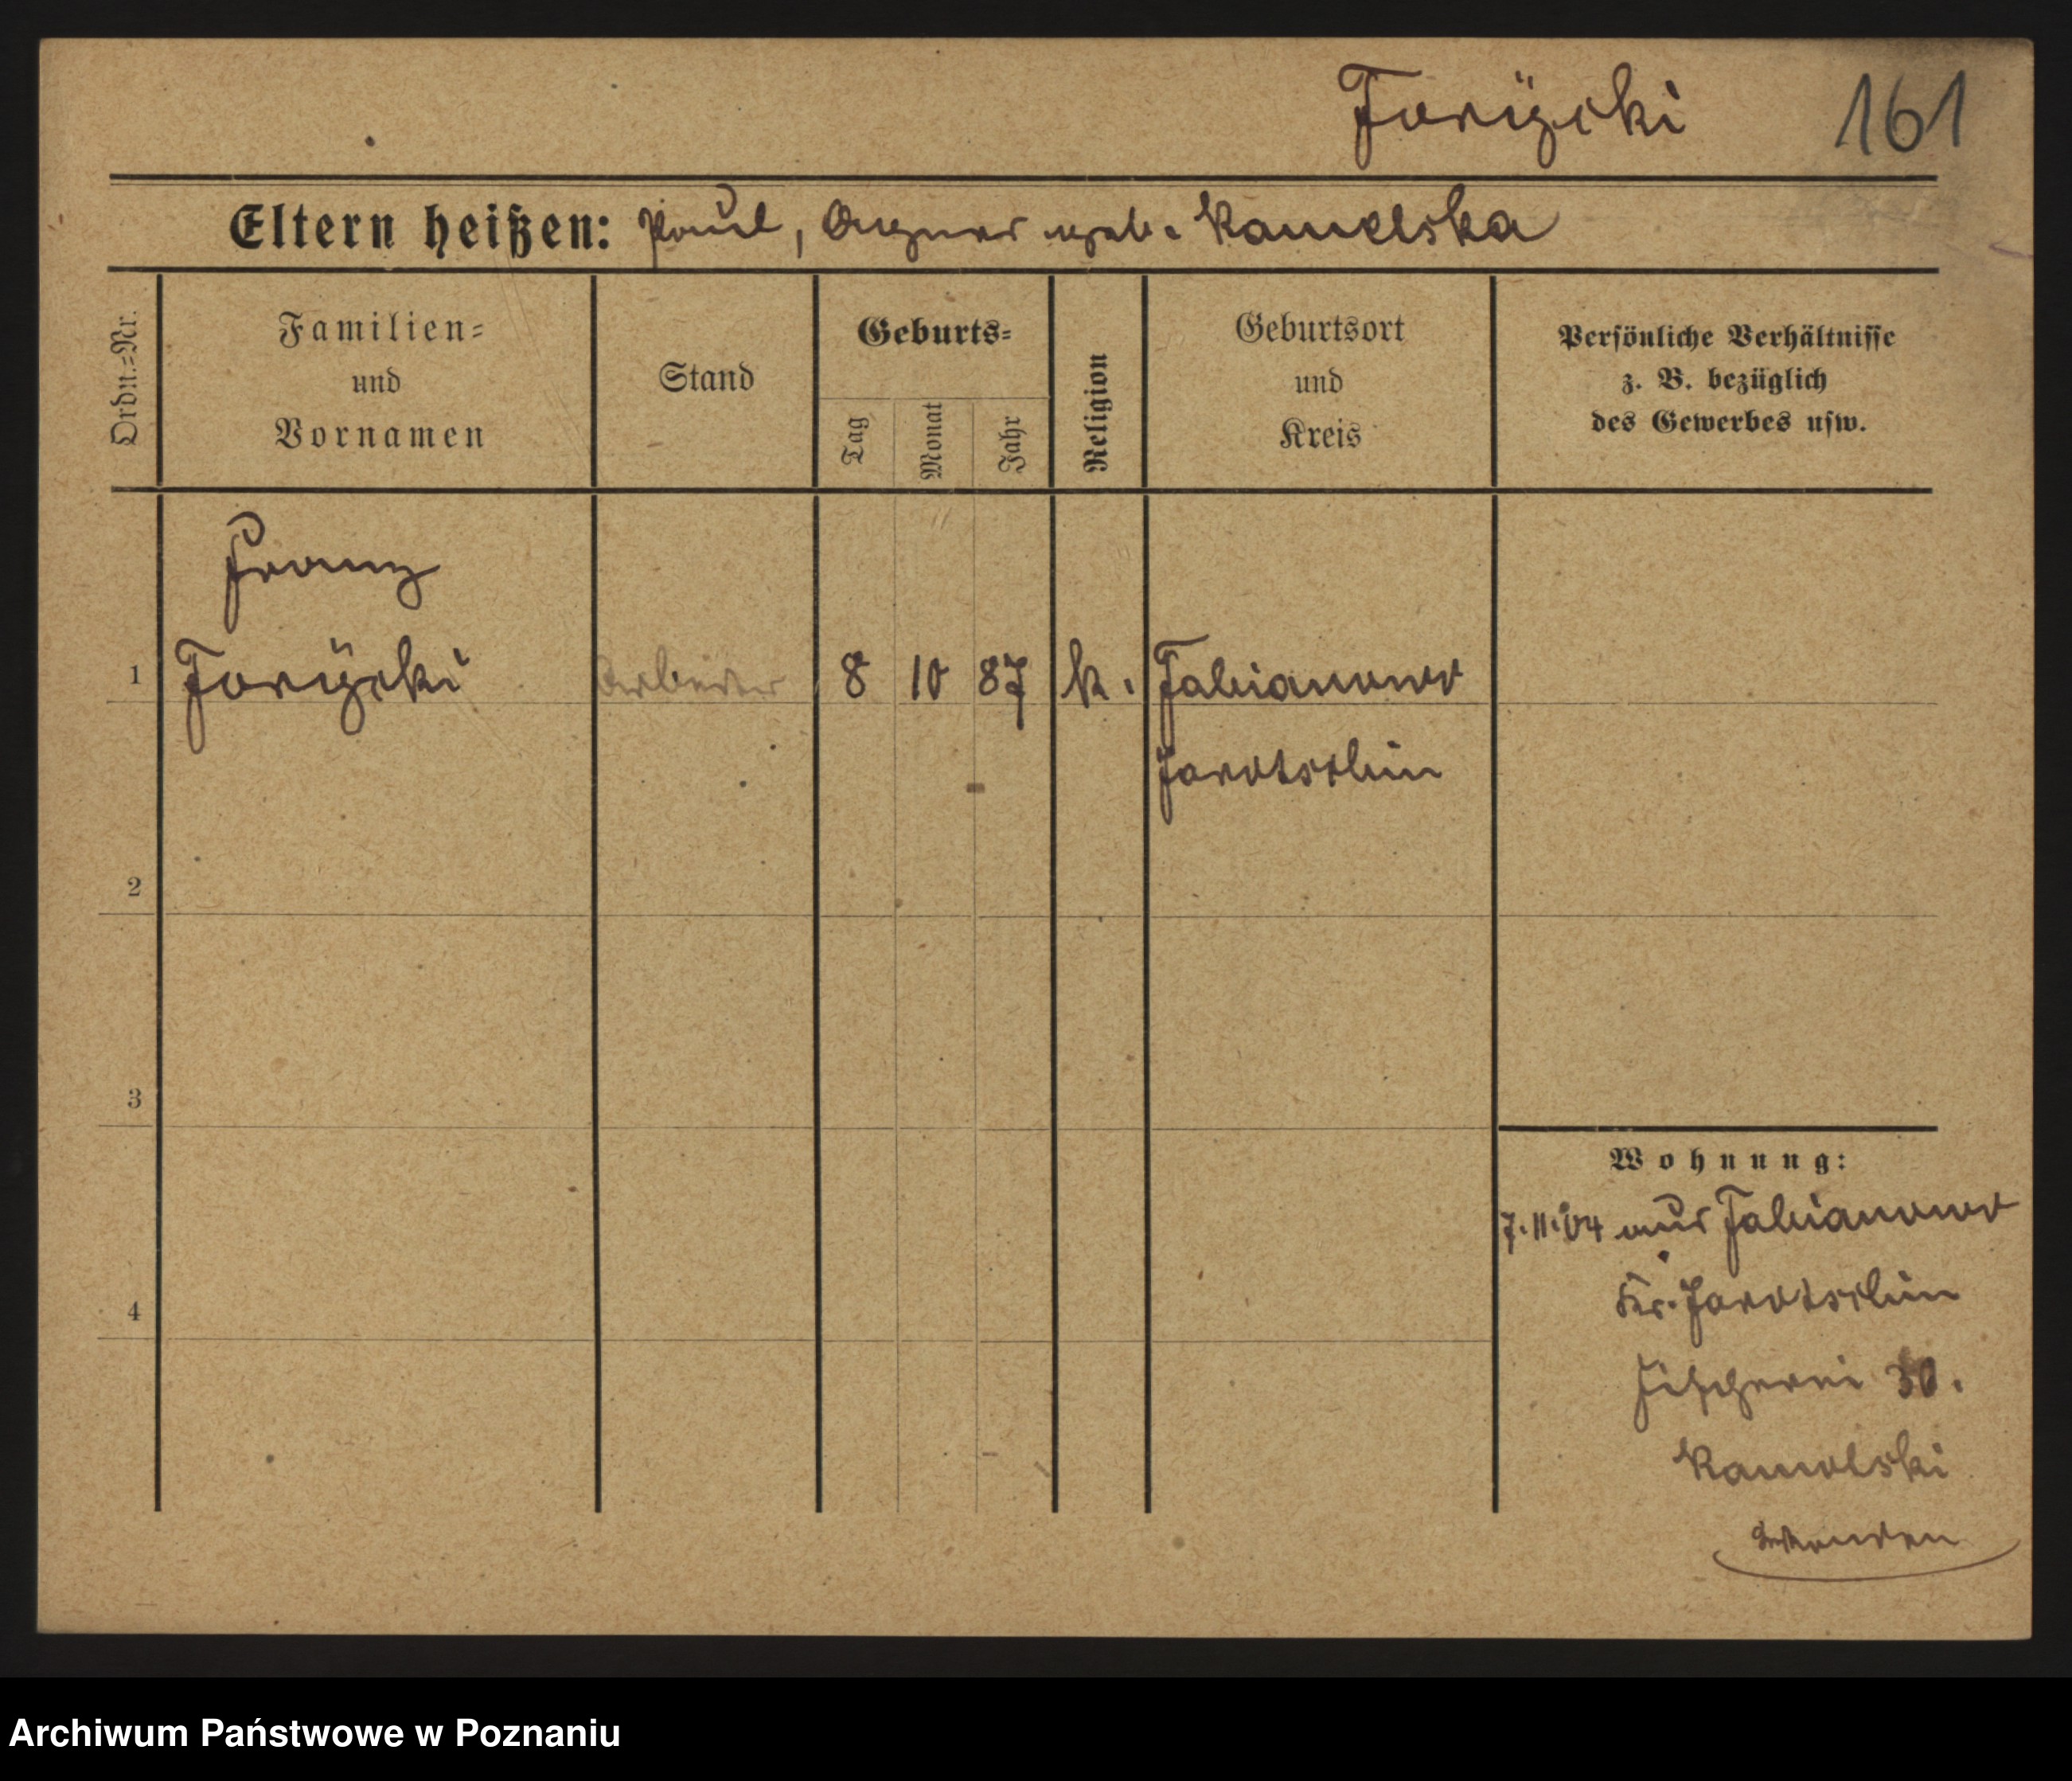 Forÿcki 161
Eltern heißen: Paul, Agnes geb. Kamolska
Ordn.=Nr.
Familien=
und
Vornamen
Stand
Geburts=
Tag
Monat
Jahr
Religion
Geburtsort
und
Kreis
Persönliche Verhältnisse
z. B. bezüglich
des Gewerbes usw.
Franz
1 Forÿcki Arbeiter 8 10 87 k. Fabianowo
Jarotschin
2
3
4
Wohnung:
7.11.04 aus Fabianowo
Kr. Jarotschin
Fischerei 30.
Kamolski
wenden
Archiwum Państwowe w Poznaniu